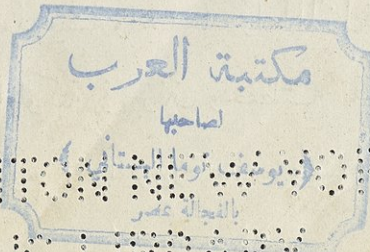 مكتبة العرب
لصاحبها
(يوسف توما البستاني)
بالفجالة بمصر